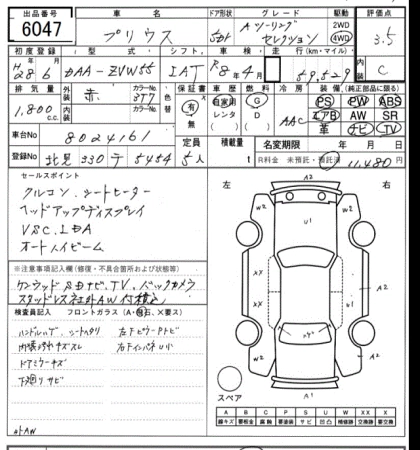 出品番号 車名 ドア形状 グレード 駆動 評価点
6047 プリウス 5DH Aツーリングセレクション 2WD 4WD 3.5
初度登録 型式 シフト 車検 走行(km・マイル) 内装
H28 6 DAA-ZVW55 IAT R8年4月 59,529 C
排気量 外装 色 カラーNo. 色替 保証書 車歴 燃料 冷房 装備(純正部品に限る)
1,800 cc. 赤 3T7 有 無 自家用 レンタ G D AAC PS PW ABS
エアB AW SR
革 ナビ TV
車台No 8024161 定員 積載量 名変期限 年 月 日
登録No 北見 330 テ 5454 5人 t R料金 未預託・預託済 11,480円
セールスポイント
クルコン、シートヒーター
ヘッドアップディスプレイ
VSC. IDA
オートハイビーム
※注意事項記入欄(修復・不具合箇所および改造等)
ケンウッドSDナビ.TV.バックカメラ
スタッドレス社外AW付積込
検査員記入 フロントガラス(A・飛石・X要ス)
ハンドルハゲ. シートヘタリ
内張汚れキズスレ
ドアミラーキズ
下廻りサビ
外AW
左 右
A2
W2 U1 W2
XX XX
W2 A2 A2
A1
スペア
A B C P S U W X XX
線キズ 要板金 腐蝕 要塗装 サビ 凹凸 補修跡 要交換 交換済